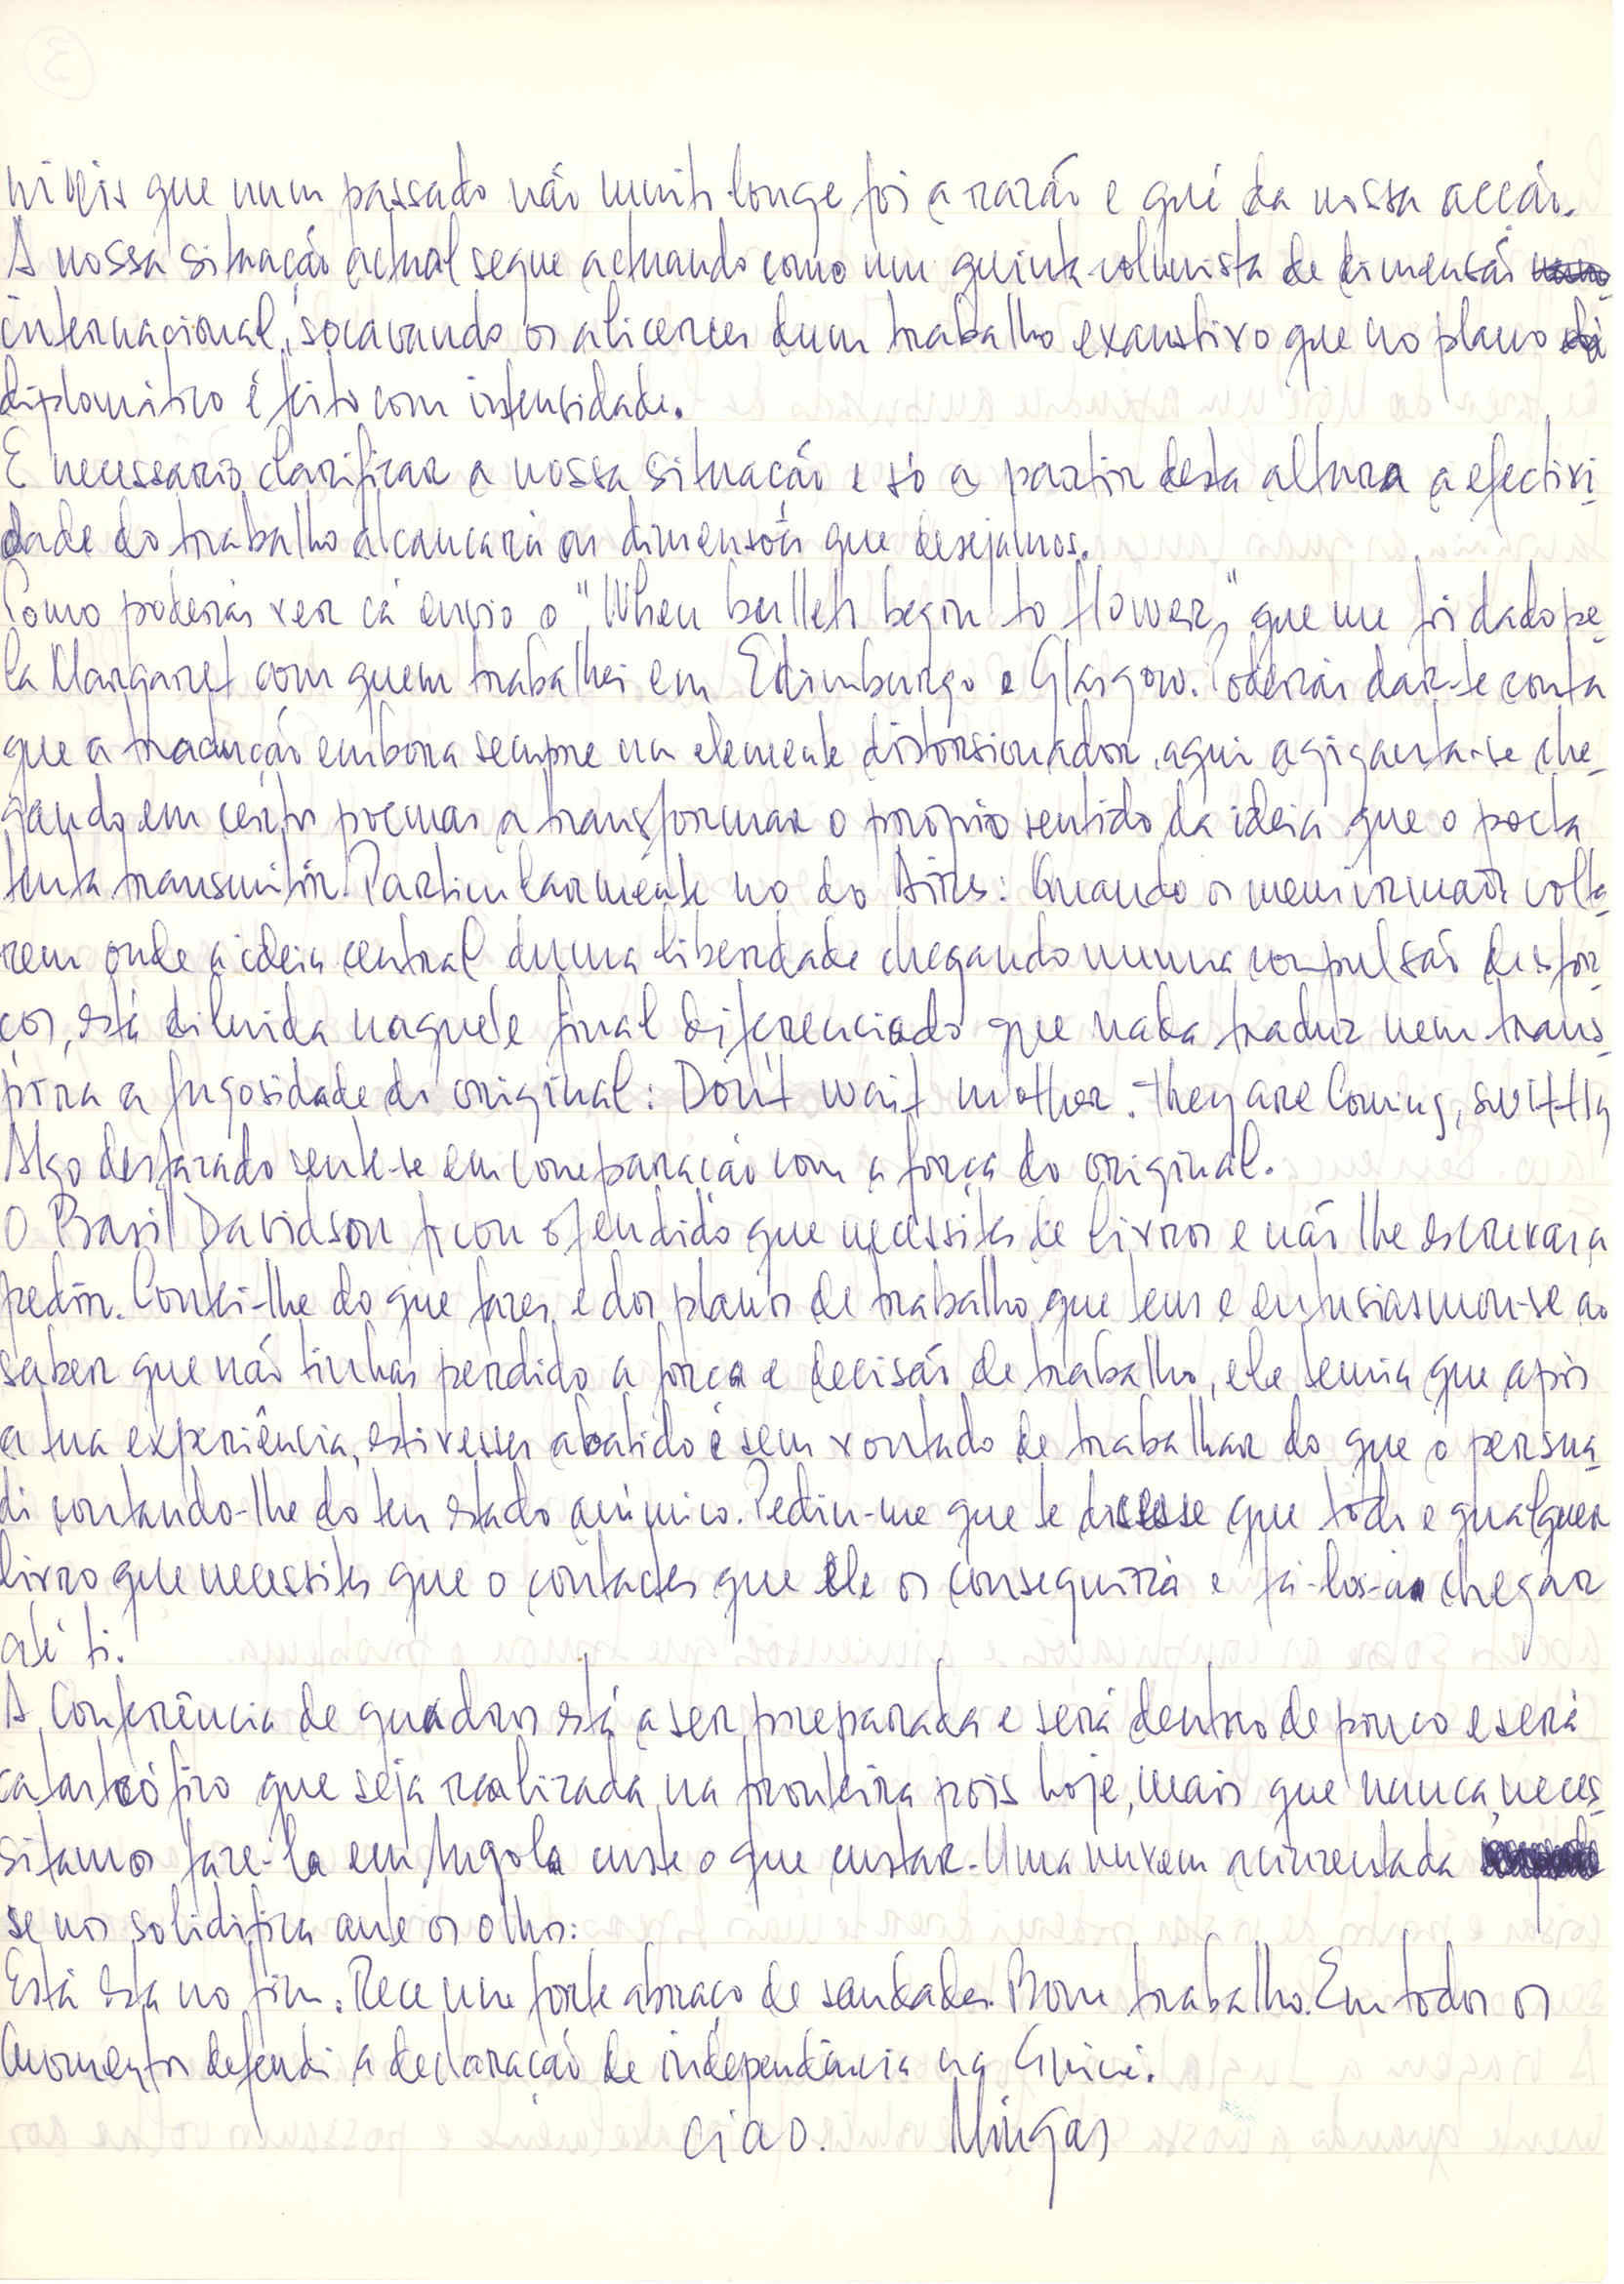 níveis que num passado não muito longe foi a razão e guê da nossa acção.
A nossa situação actual segue actuando como um quinta-colunista de dimensão
internacional, socavando os alicerces dum trabalho exaustivo que no plano
diplomático é feito com intensidade.
É necessario clarificar a nossa situação e só a partir desta altura a efectivi-
dade do trabalho alcançará as dimensões que desejamos.
Como poderás ver cá envio o "When bullets begin to flower," que me foi dado pe-
la Margaret com quem trabalhei em Edimburgo e Glasgow. Poderás dar-te conta
que a tradução embora sempre um elemente distorsionador, aqui agiganta-se che-
gando em certos poemas a transformar o próprio sentido da ideia que o poeta
tenta transmitir. Particularmente no do Aires: Quando os meus irmãos volta-
rem onde a ideia central duma liberdade chegando numa compulsão de esfor-
ços, está diluida naquele final diferenciado que nada traduz nem trans-
pira a fugosidade do original: Don't wait mother. They are Coming, swittly
Algo desfazado sente-se em comparação com a força do original.
O Basil Davidson ficou ofendido que necessites de livros e não lhe escrevas a
pedir. Contei-lhe do que fazes e dos planos de trabalho que tens e entusiasmou-se ao
saber que não tinhas perdido a força e decisão de trabalho, ele temia que após
a tua experiência, estivesses abatido e sem vontado de trabalhar do que o persua-
di contando-lhe do teu estado anímico. Pediu-me que te dissesse que todo e qualquer
livro que necessites que o contactes que ele os conseguirá e fá-los-á chegar
até ti.
A Conferência de quadros está a ser preparada e será dentro de pouco e será
catastrófico que seja realizada na fronteira pois hoje, mais que nunca, neces-
sitamos faze-la em Angola custe o que custar. Uma nuvem acinzentada
se nos solidifica ante os olhos:
Está esta no fim. Rece um forte abraço de saudades. Bom trabalho. Em todos os
momentos defendi a declaração de independência na Guiné.
Ciao. Mingas